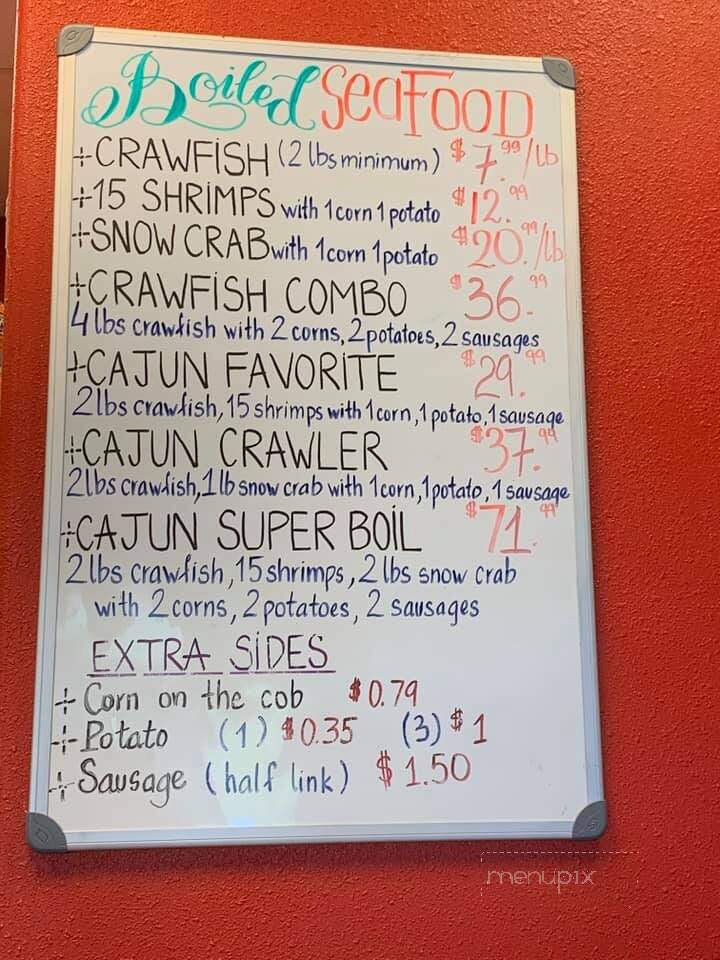 Boiled SEAFOOD
+CRAWFISH (2 lbs minimum) $7.99/lb
+15 SHRIMPS with 1 corn 1 potato $12.99
+SNOW CRAB with 1 corn 1 potato $20.99/lb
+CRAWFISH COMBO $36.99
4 lbs crawfish with 2 corns, 2 potatoes, 2 sausages
+CAJUN FAVORITE $29.99
2 lbs crawfish, 15 shrimps with 1 corn, 1 potato, 1 sausage
+CAJUN CRAWLER $37.99
2 lbs crawfish, 1 lb snow crab with 1 corn, 1 potato, 1 sausage
+CAJUN SUPER BOIL $71.99
2 lbs crawfish, 15 shrimps, 2 lbs snow crab
with 2 corns, 2 potatoes, 2 sausages
EXTRA SIDES
+ Corn on the cob $0.79
+ Potato (1) $0.35 (3) $1
+ Sausage (half link) $1.50
menupix